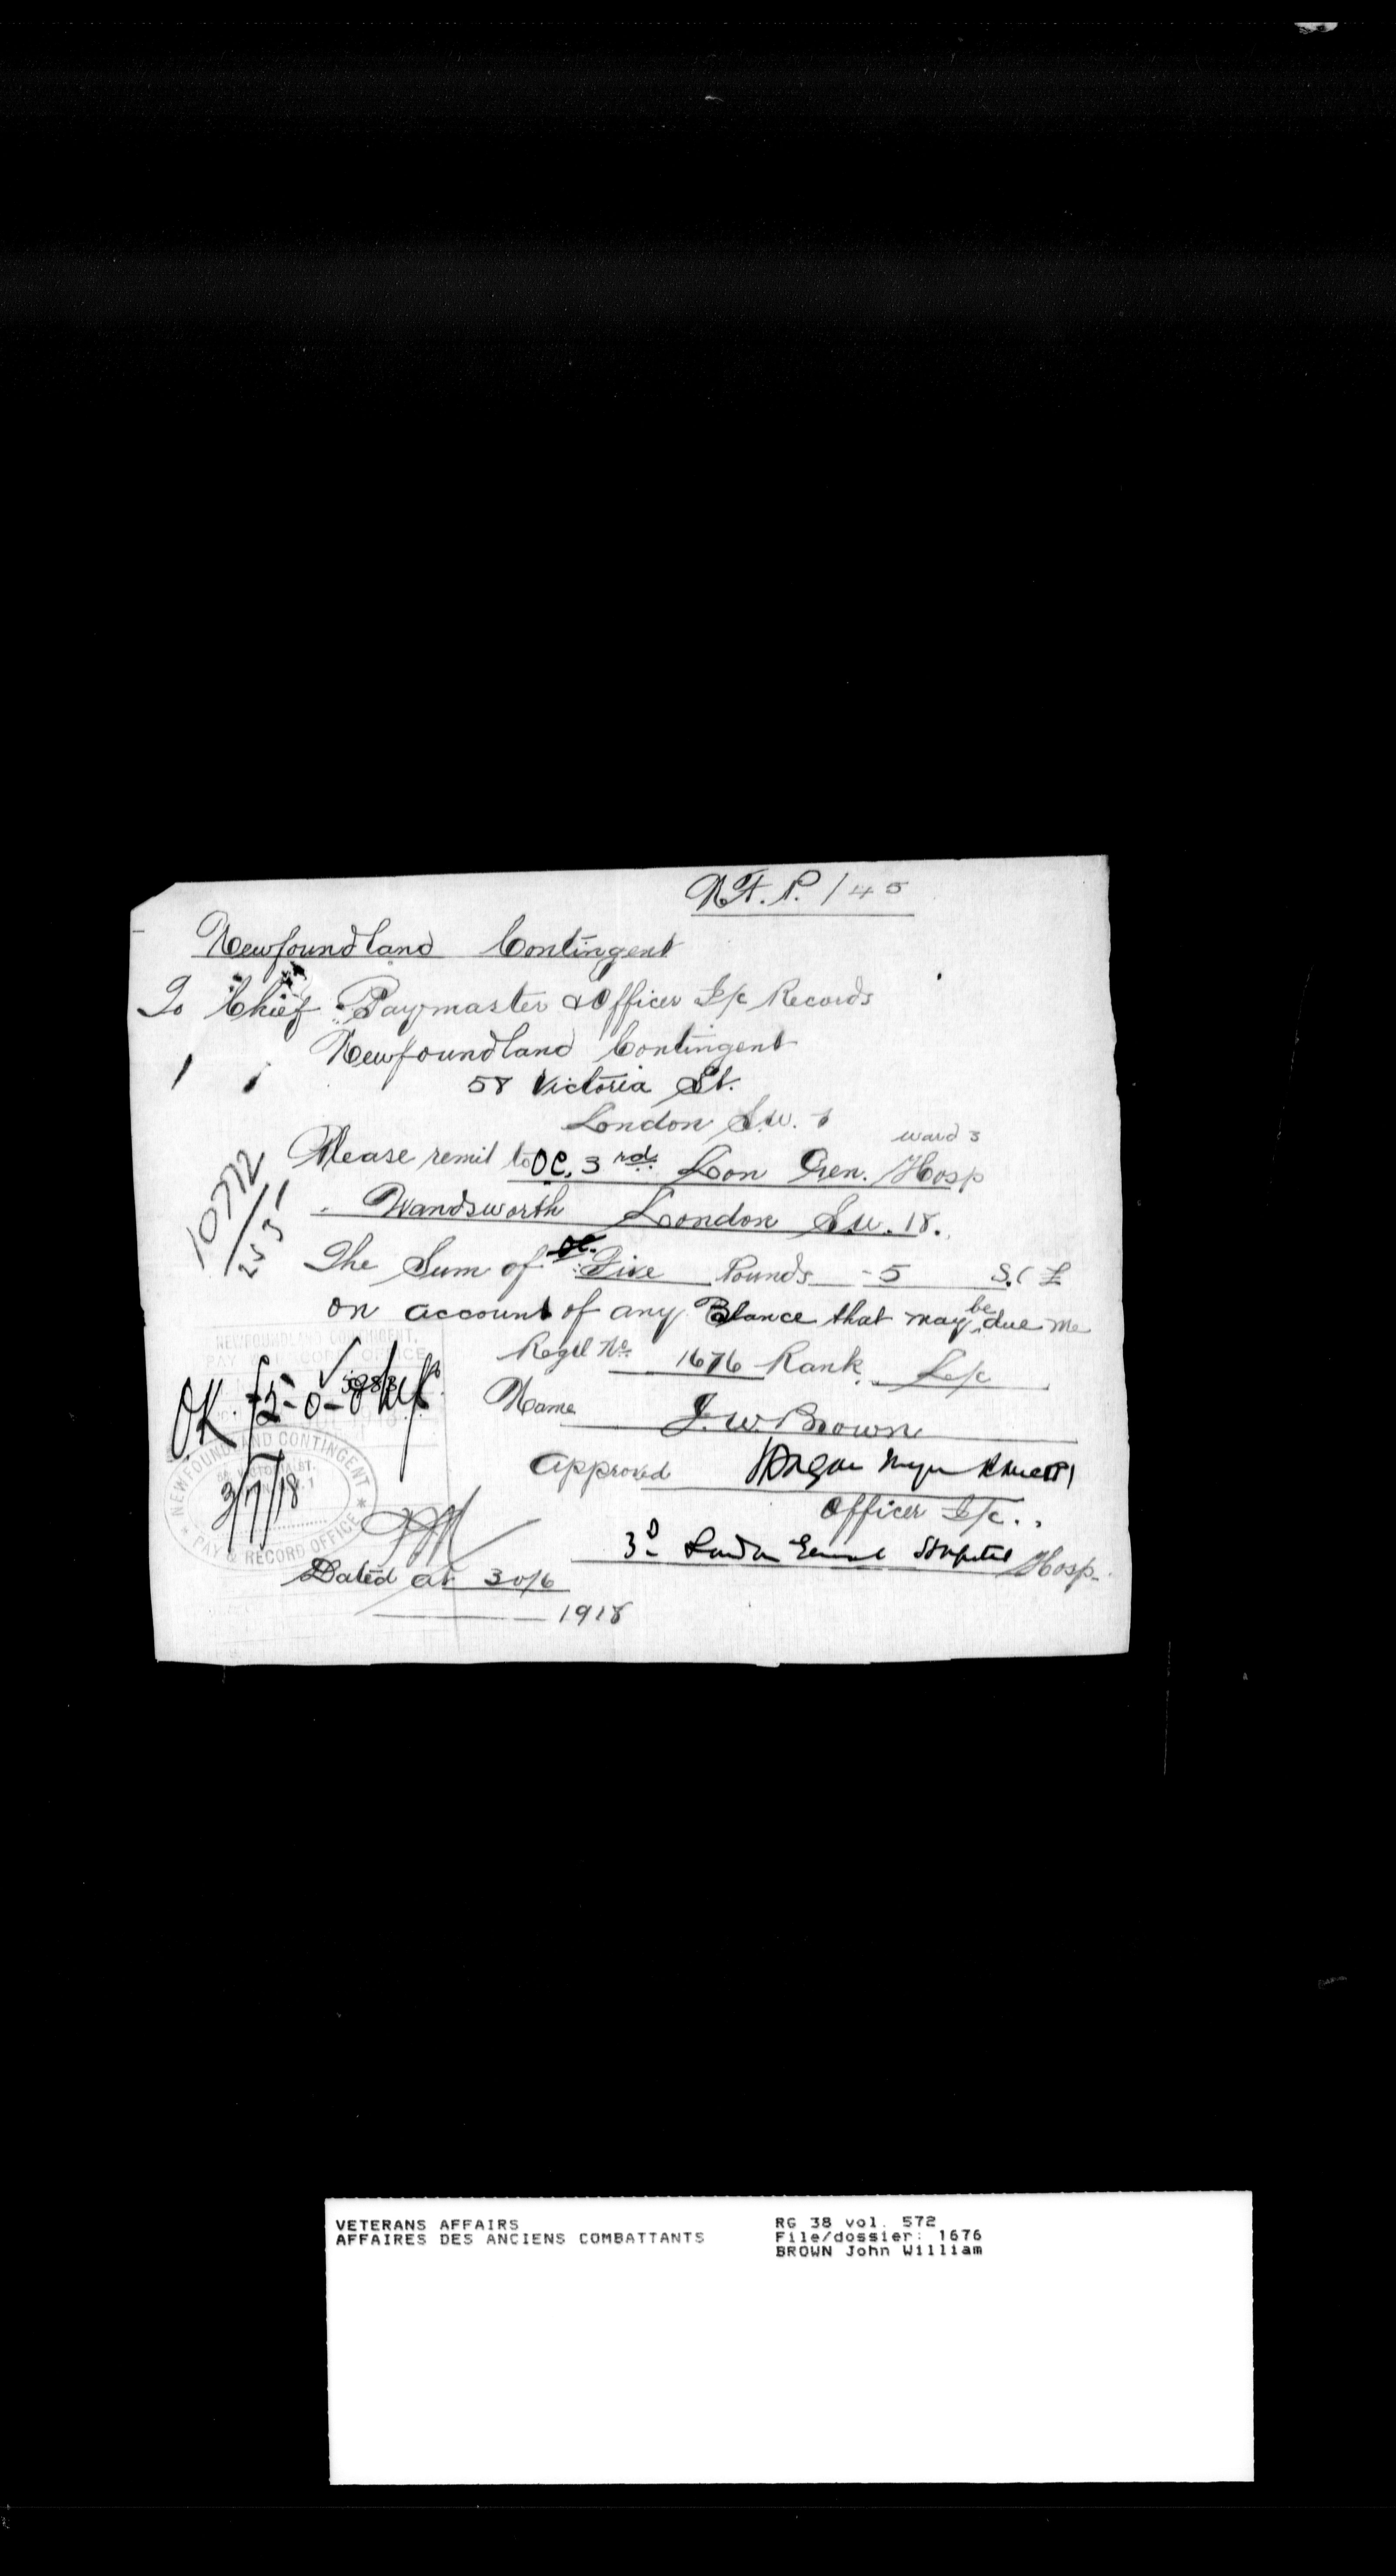 N.F.P. / 45
Newfoundland Contingent
To Chief Paymaster & Officer I/c Records
Newfoundland Contingent
58 Victoria St.
London S.W. 1
ward 3
Please remit to OC. 3rd Lon Gen. Hosp
Wandsworth London S.W. 18.
10772
The Sum of Five Pounds - 5 S. £
on account of any Blance that may be due me
NEWFOUNDLAND CONTINGENT.
PAY & RECORD OFFICE
Regtl No. 1676 Rank L/c
OK. £5-0-0
Name J. W. Brown
Approved
NEWFOUNDLAND CONTINGENT
58 VICTORIA ST.
PAY & RECORD OFFICE
3/7/18
Officer I/c.
3d London General Hospital Hosp.
Dated at 30/6
1918
VETERANS AFFAIRS
AFFAIRES DES ANCIENS COMBATTANTS
RG 38 vol. 572
File/dossier: 1676
BROWN John William